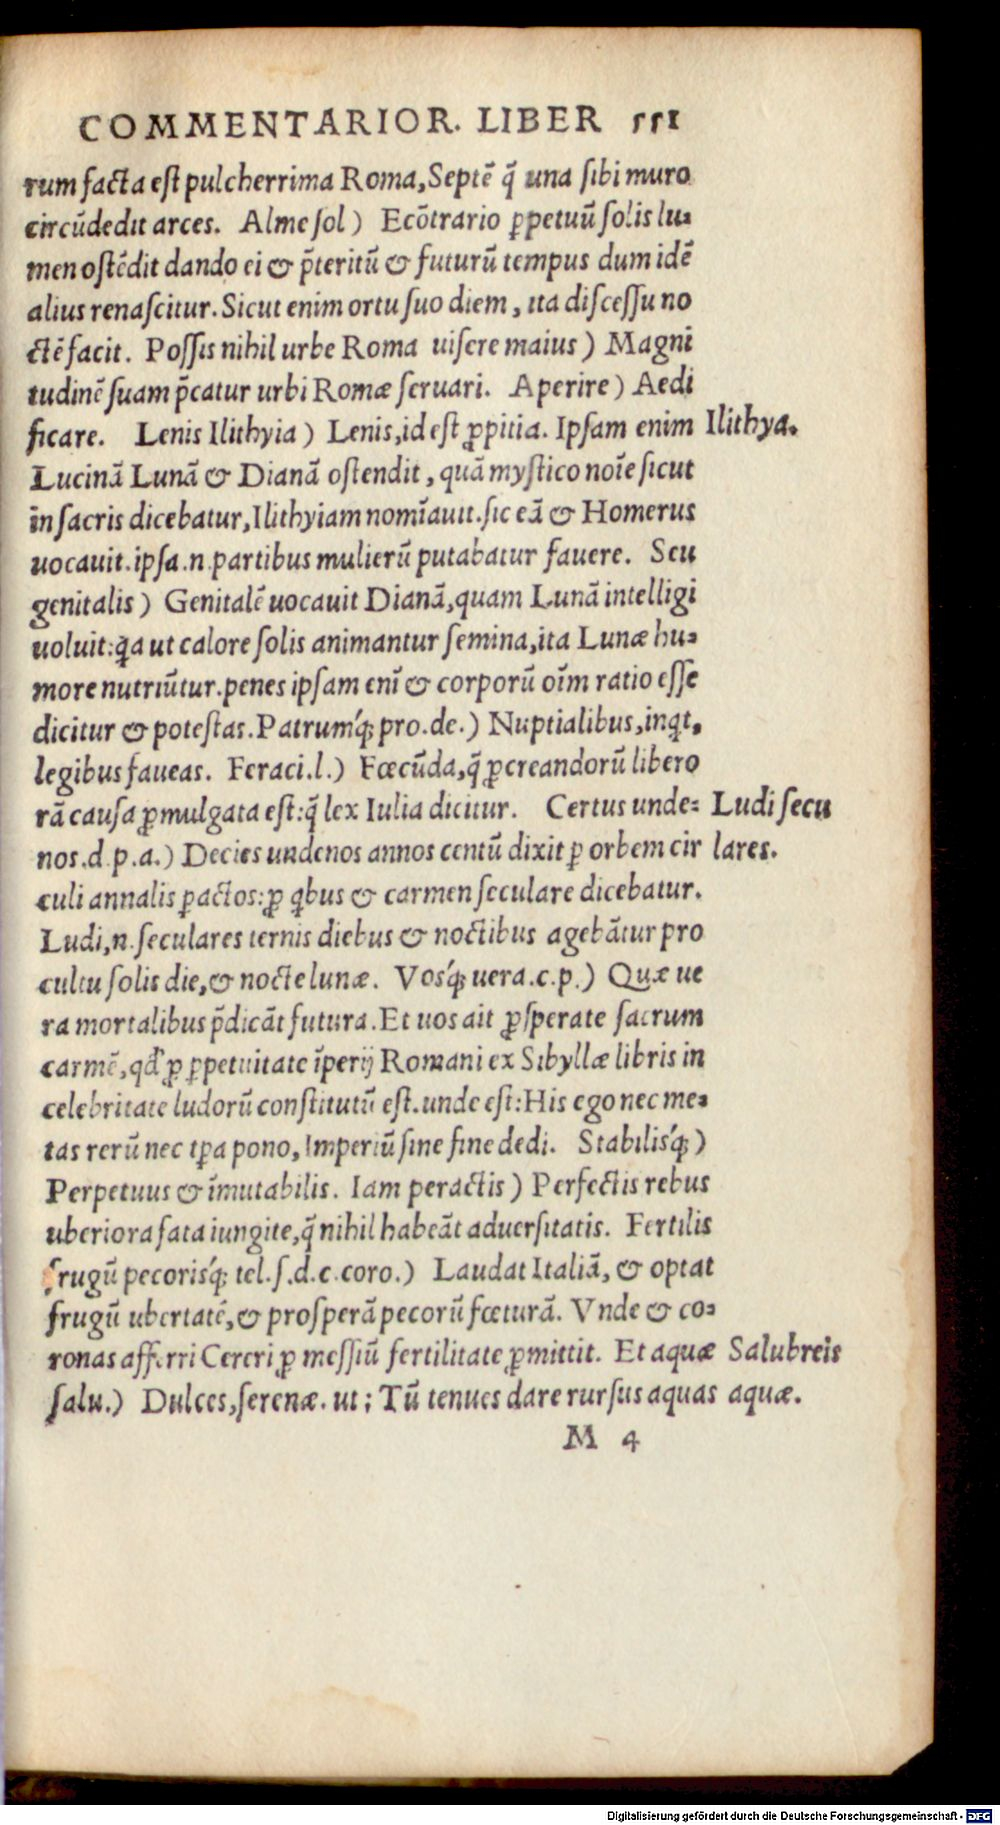 COMMENTARIOR. LIBER
rum facta est pulcherrima Roma, Septē q̄ una sibi muro
circūdedit arces. Alme sol) Ecōtrario ꝑpetuū solis lu-
men ostēdit dando ei & p̄teritū & futurū tempus dum idē
alius renascitur. Sicut enim ortu suo diem, ita discessu no
ctē facit. Possis nihil urbe Roma uisere maius) Magni
tudinē suam p̄catur urbi Romæ seruari. Aperire) Aedi
ficare. Lenis Ilithyia) Lenis, id est ꝓpitia. Ipsam enim Ilithya.
Lucinā Lunā & Dianā ostendit, quā mystico noīe sicut
in sacris dicebatur, Ilithyiam nomīauit. sic eā & Homerus
uocauit. ipsa .n. partibus mulierū putabatur fauere. Seu
genitalis) Genitalē uocauit Dianā, quam Lunā intelligi
uoluit: ꝗa ut calore solis animantur semina, ita Lunæ hu-
more nutriūtur. penes ipsam enī & corporū oīm ratio esse
dicitur & potestas. Patrumq́; pro. de.) Nuptialibus, inꝗt,
legibus faueas. Feraci. l.) Fœcūda, q̄ ꝓcreandorū libero
rā causa ꝓmulgata est: q̄ lex Iulia dicitur. Certus unde- Ludi secu
nos. d. p. a.) Decies undenos annos centū dixit ꝑ orbem cir lares.
culi annalis ꝑactos: ꝓ ꝗbus & carmen seculare dicebatur.
Ludi, n. seculares ternis diebus & noctibus agebātur pro
cultu solis die, & nocte lunæ. Vosq́; uera. c. p.) Quæ ue
ra mortalibus p̄dicāt futura. Et uos ait ꝓsperate sacrum
carmē, qd̓ ꝓ ꝑpetuitate īperij Romani ex Sibyllæ libris in
celebritate ludorū constitutū est. unde est: His ego nec me-
tas rerū nec tꝑa pono, Imperiū sine fine dedi. Stabilisq́;)
Perpetuus & īmutabilis. Iam peractis) Perfectis rebus
uberiora fata iungite, q̄ nihil habeāt aduersitatis. Fertilis
frugū pecorisq́; tel. s. d. c. coro.) Laudat Italiā, & optat
frugū ubertatē, & prosperā pecorū fœturā. Vnde & co-
ronas afferri Cereri ꝓ messiū fertilitate ꝓmittit. Et aquæ Salubreis
salu.) Dulces, serenæ. ut; Tū tenues dare rursus aquas aquæ.
M 4
Digitalisierung gefördert durch die Deutsche Forschungsgemeinschaft - DFG